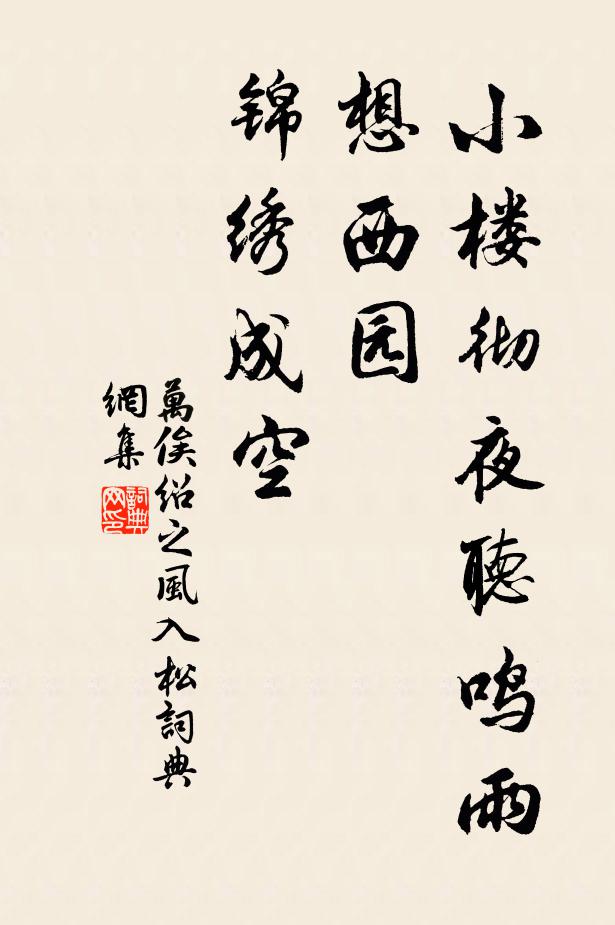 小楼彻夜聽鸣雨
想西园
锦绣成空
萬俟绍之風入松詞典
網集
詞典網印